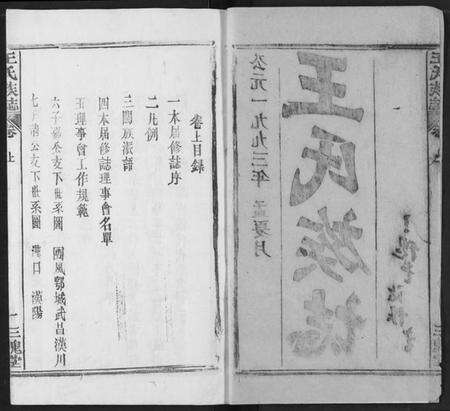 王氏族誌
公元一九九三年 孟夏月
王氏族誌
卷上
三槐堂
卷上目錄
一本屆修誌序
二凡例
三闔族派語
四本屆修誌理事會名單
五理事會工作規範
六子 公支下世系圖 團風 鄂城 武昌 漢川
七 公支下世系圖 漢口 漢陽
王氏族誌
卷上
一
三槐堂